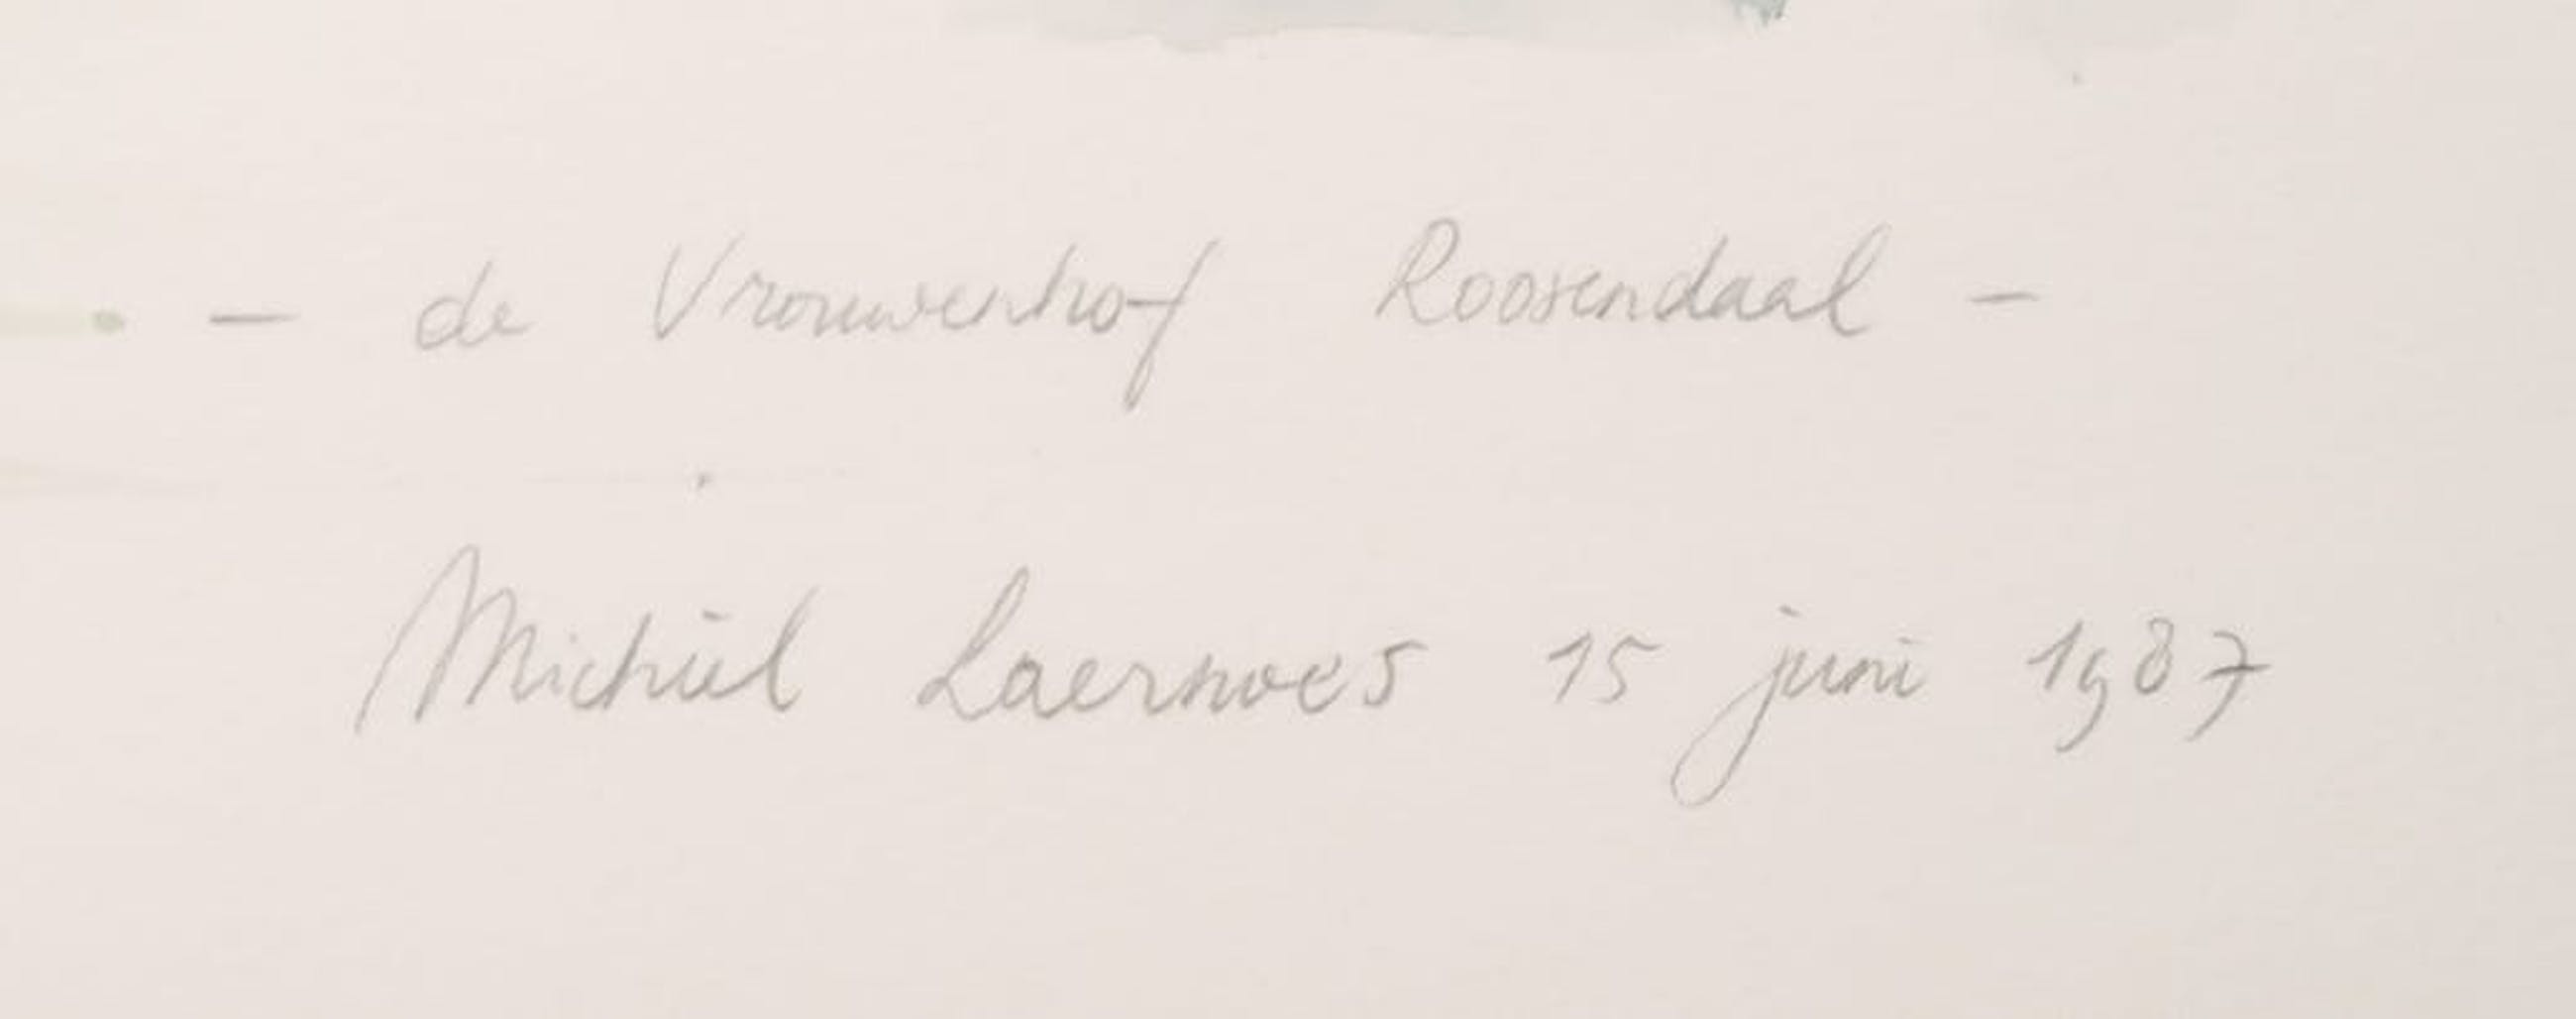 - de Vrouwenhof Roosendaal -
Michiel Laernoes 15 juni 1987